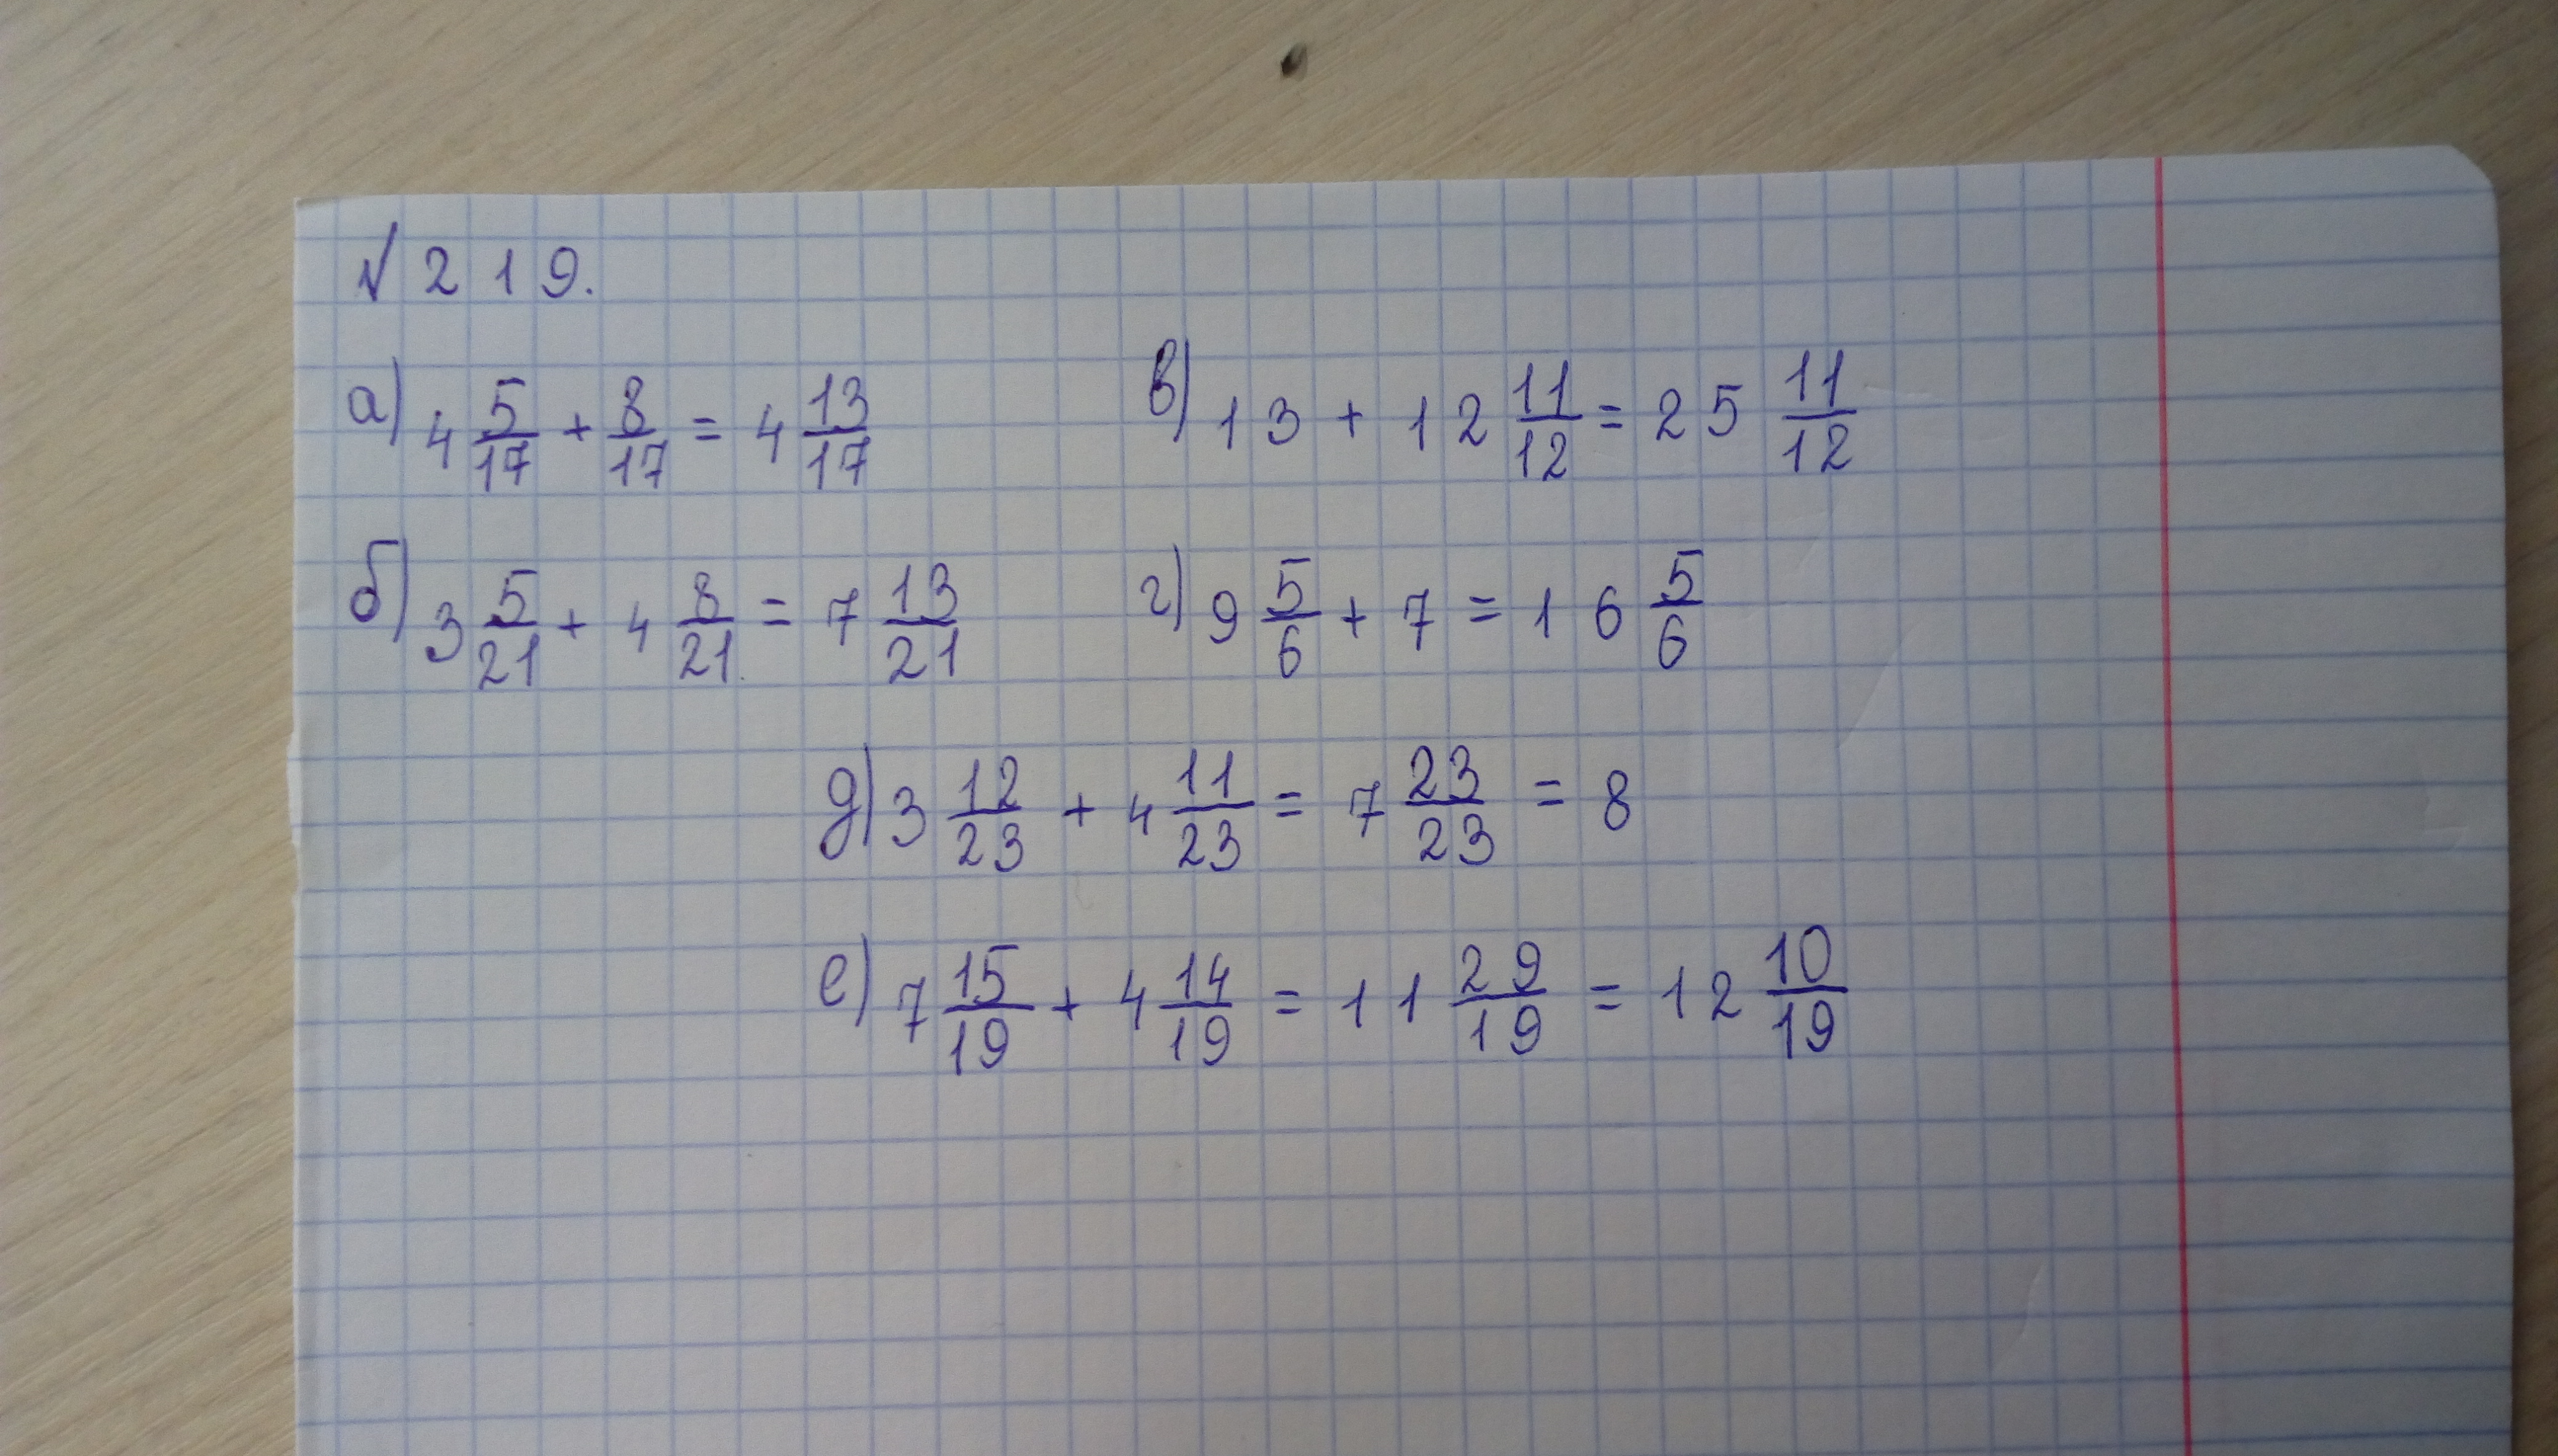 № 219.
а) 4 5/17 + 8/17 = 4 13/17
в) 13 + 12 11/12 = 25 11/12
б) 3 5/21 + 4 8/21 = 7 13/21
г) 9 5/6 + 7 = 16 5/6
д) 3 12/23 + 4 11/23 = 7 23/23 = 8
е) 7 15/19 + 4 14/19 = 11 29/19 = 12 10/19